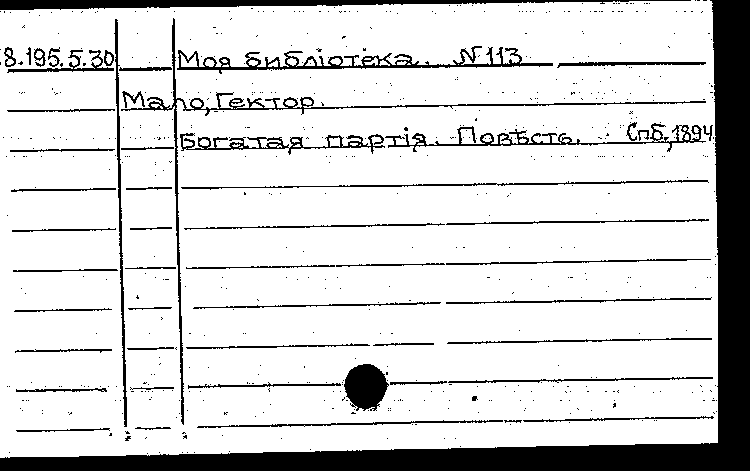 8.195.5.30 Моя библіотека. N 113
Мало, Гектор.
Богатая партія. Повѣсть. Спб, 1894